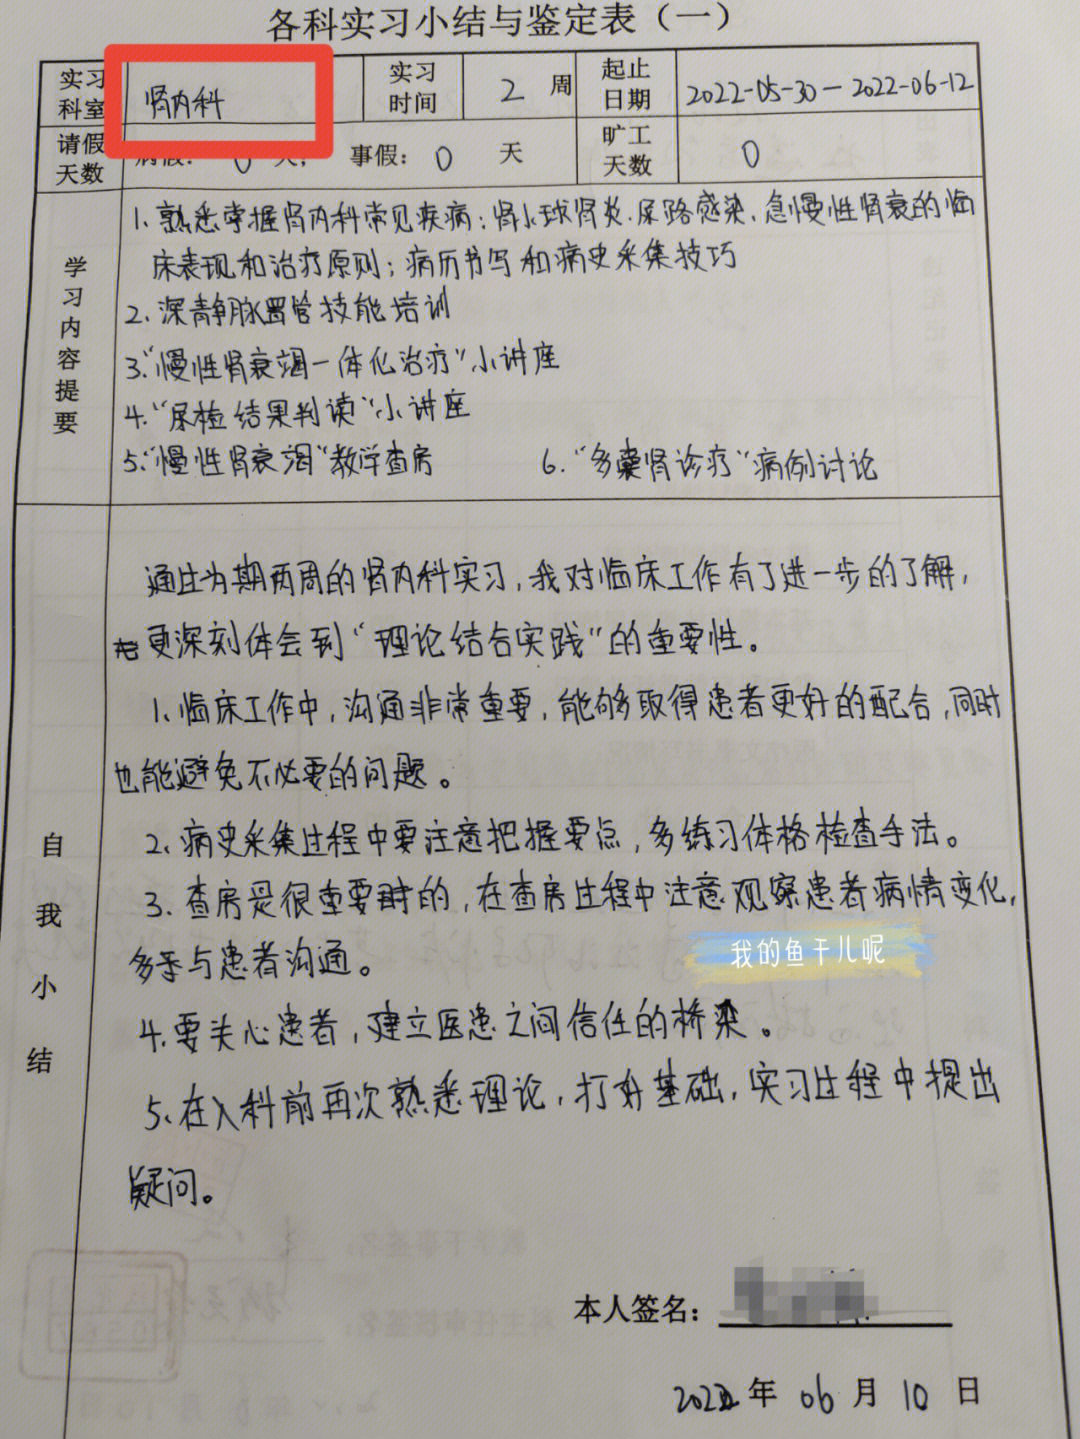 各科实习小结与鉴定表（一）
实习科室 肾内科 实习时间 2 周 起止日期 2022-05-30-2022-06-12
请假天数 病假：0 天， 事假：0 天 旷工天数 0
学习内容提要
1. 熟悉掌握肾内科常见疾病：肾小球肾炎、尿路感染、急慢性肾衰的临
床表现和治疗原则；病历书写和病史采集技巧
2. 深静脉置管技能培训
3. "慢性肾衰竭一体化治疗"小讲座
4. "尿检结果判读"小讲座
5. "慢性肾衰竭"教学查房 6. "多囊肾诊疗"病例讨论
自我小结
通过为期两周的肾内科实习，我对临床工作有了进一步的了解，
更深刻体会到"理论结合实践"的重要性。
1、临床工作中，沟通非常重要，能够取得患者更好的配合，同时
也能避免不必要的问题。
2、病史采集过程中要注意把握要点，多练习体格检查手法。
3、查房是很重要的，在查房过程中注意观察患者病情变化，
多与患者沟通。
我的鱼干儿呢
4、要关心患者，建立医患之间信任的桥梁。
5、在入科前再次熟悉理论，打好基础，实习过程中提出
疑问。
本人签名：
2022 年 06 月 10 日